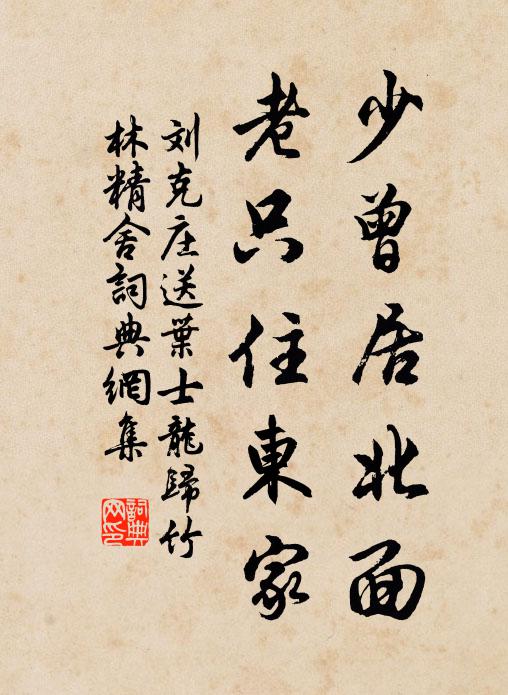 少曾居北面
老只住東家
刘克庄送葉士龍歸竹
林精舍詞典網集
詞典
网印